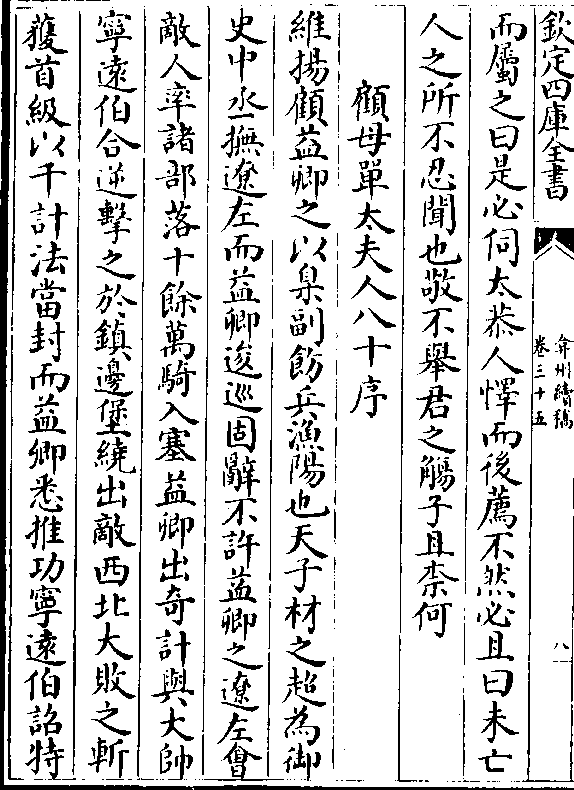 欽定四庫全書
弇州續稿
卷三十五
八
而屬之曰是必伺太恭人懌而後薦不然必且曰未亡
人之所不忍聞也敬不舉君之觴子且柰何
顧母單太夫人八十序
維揚顧益卿之以臬副飭兵漁陽也天子材之超為御
史中丞撫遼左而益卿逡巡固辭不許益卿之遼左會
敵人率諸部落十餘萬騎入塞益卿出奇計與大帥
寧遠伯合逆擊之於鎮邊堡繞出敵西北大敗之斬
獲首級以千計法當封而益卿悉推功寧遠伯詔特